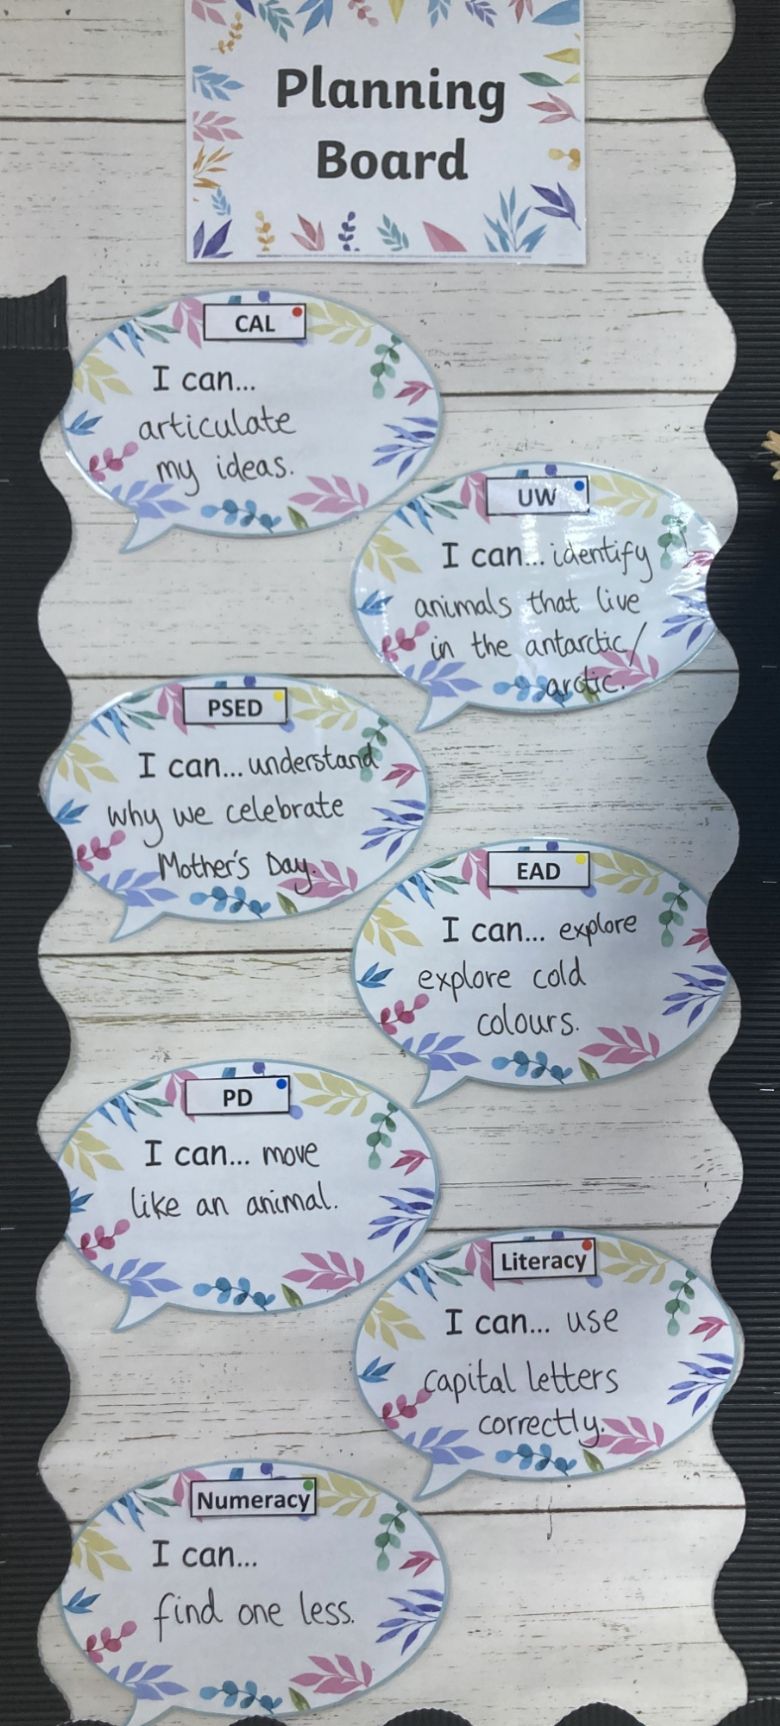 Planning
Board
CAL
I can...
articulate
my ideas.
UW
I can... identify
animals that live
in the antarctic/
arctic.
PSED
I can... understand
why we celebrate
Mother's Day.
EAD
I can... explore
explore cold
colours.
PD
I can... move
like an animal.
Literacy
I can... use
capital letters
correctly.
Numeracy
I can...
find one less.